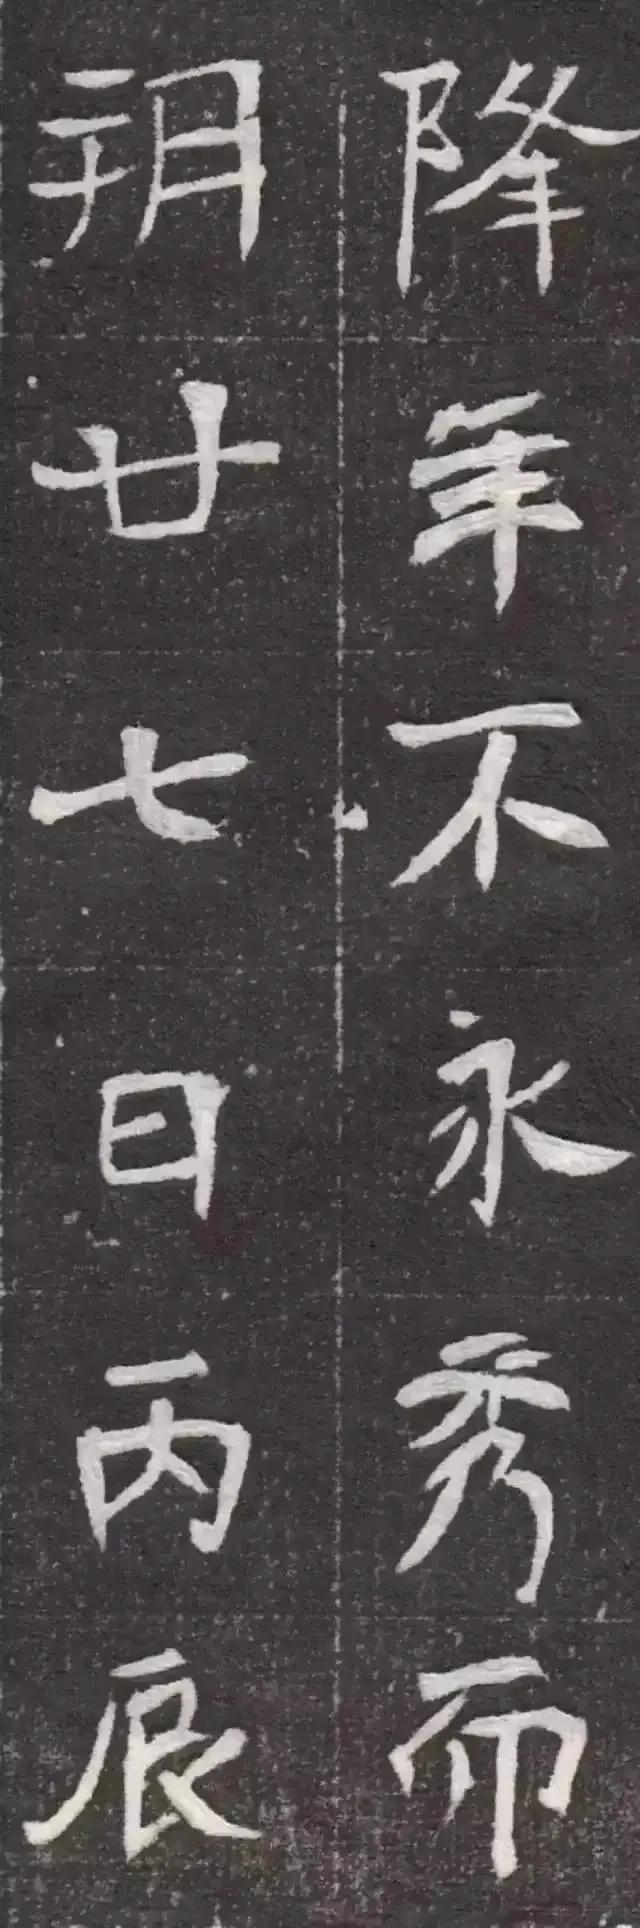 隆年不永秀而
朔廿七日丙辰